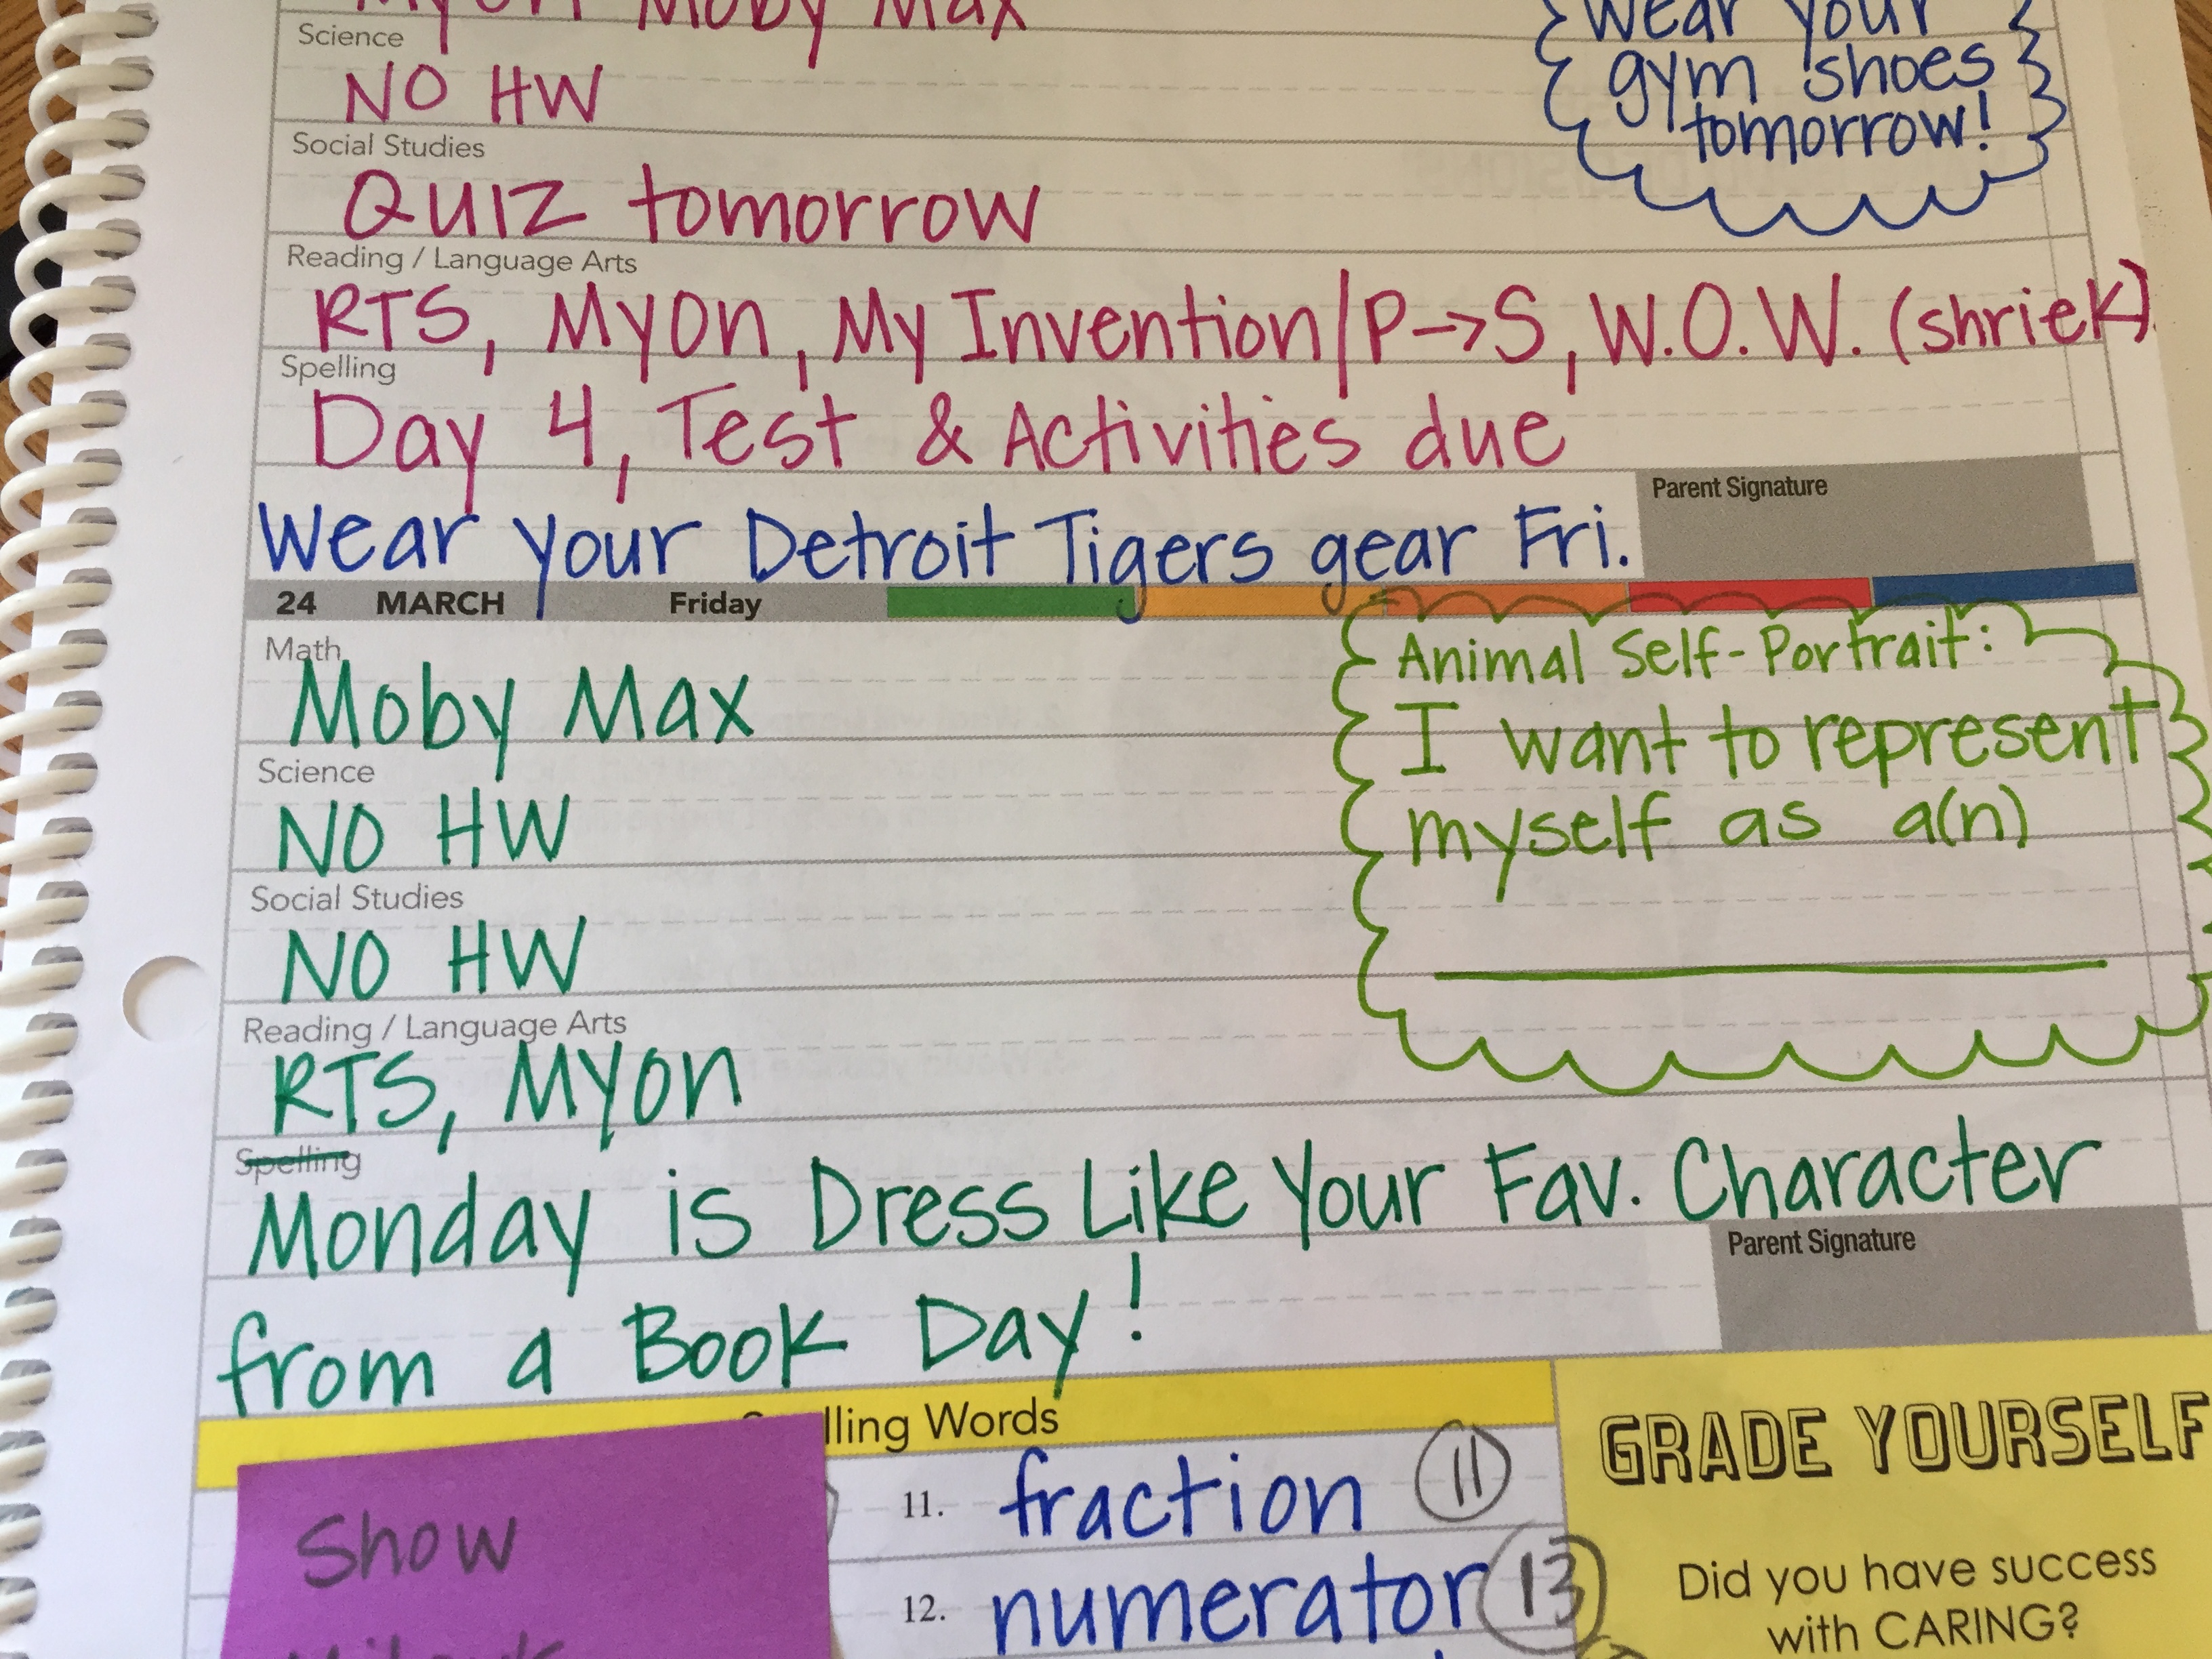 MyOn Moby Max
Science
NO HW
Wear your
gym shoes
tomorrow!
Social Studies
QUIZ tomorrow
Reading / Language Arts
RTS, MyOn, My Invention/P→S, W.O.W. (shriek)
Spelling
Day 4, Test & Activities due
Parent Signature
Wear your Detroit Tigers gear Fri.
24 MARCH Friday
Math
Moby Max
Animal Self-Portrait:
I want to represent
myself as a(n)
Science
NO HW
Social Studies
NO HW
Reading / Language Arts
RTS, MyOn
Spelling
Monday is Dress Like Your Fav. Character
Parent Signature
from a Book Day!
lling Words
Show
11. fraction 11
12. numerator 13
GRADE YOURSELF
Did you have success
with CARING?